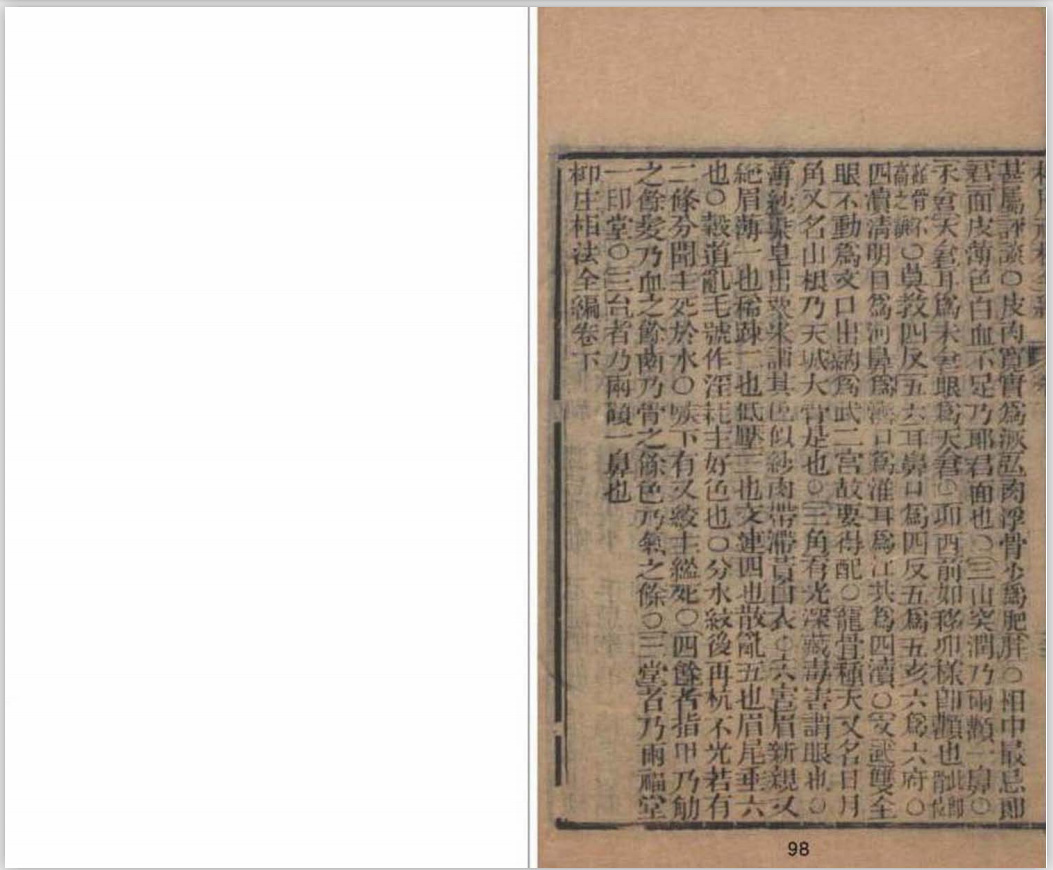 甚屬評議〇皮肉寬實爲派弘肉浮骨少爲肥胖〇相中最忌即
君面皮薄色白血不足乃耶君面也〇三山突潤乃兩顴一鼻〇
禾倉天倉耳爲禾倉眼爲天倉〇卯酉前如移卯樣即顴也
〇莫教四反五六耳鼻口爲四反五爲五亥六爲六府〇
四瀆淸明目爲河鼻爲濟口爲淮耳爲江共爲四瀆〇文武雙全
眼不動爲文口出納爲武二宮故要得配〇龍骨種天又名日月
角又名山根乃天城大骨是也〇三角有光深藏毒害謂眼也〇
薄紗染皂出衆來謂其色似紗肉帶滯〇六害眉新親又
絕眉薄一也稀疎二也低壓三也交連四也散亂五也眉尾垂六
也〇穀道亂毛號作淫耗主好色也〇分水紋後再杭不光若有
二條分開主死於水〇喉下有又絞主縊死〇四餘者指甲乃觔
之餘髮乃血之餘齒乃骨之餘色乃氣之餘〇三堂者乃兩福堂
一印堂〇三台者乃兩顴一鼻也
柳庄相法全編卷下
98